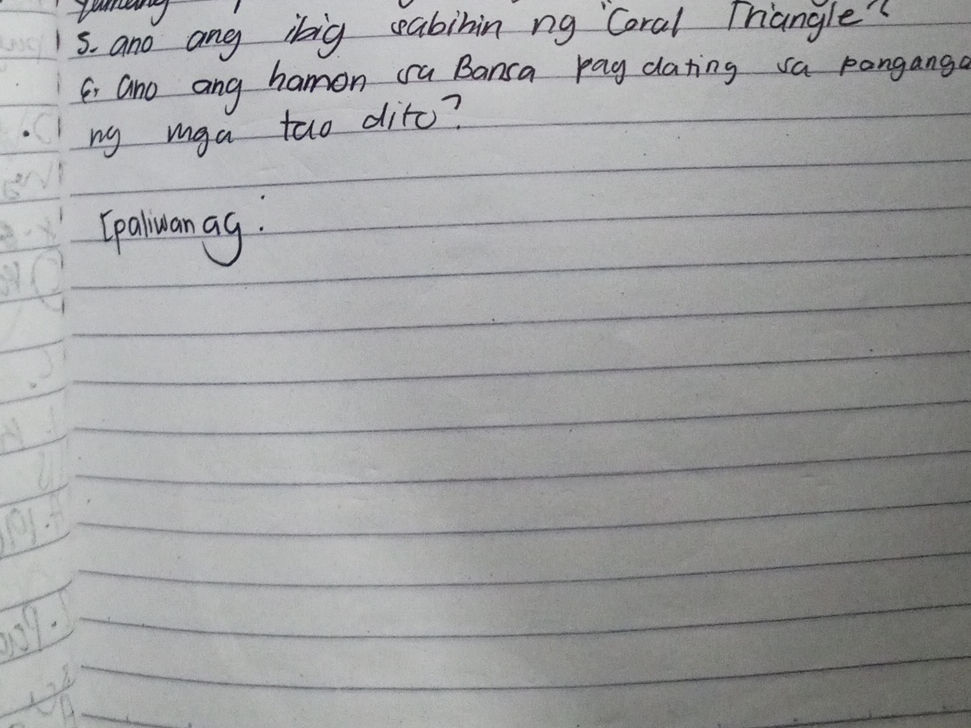 5. ano ang ibig sabihin ng "Coral Triangle?
6. ano ang hamon sa Bansa pag dating sa
ng mga tao dito?
Ipaliwanag: